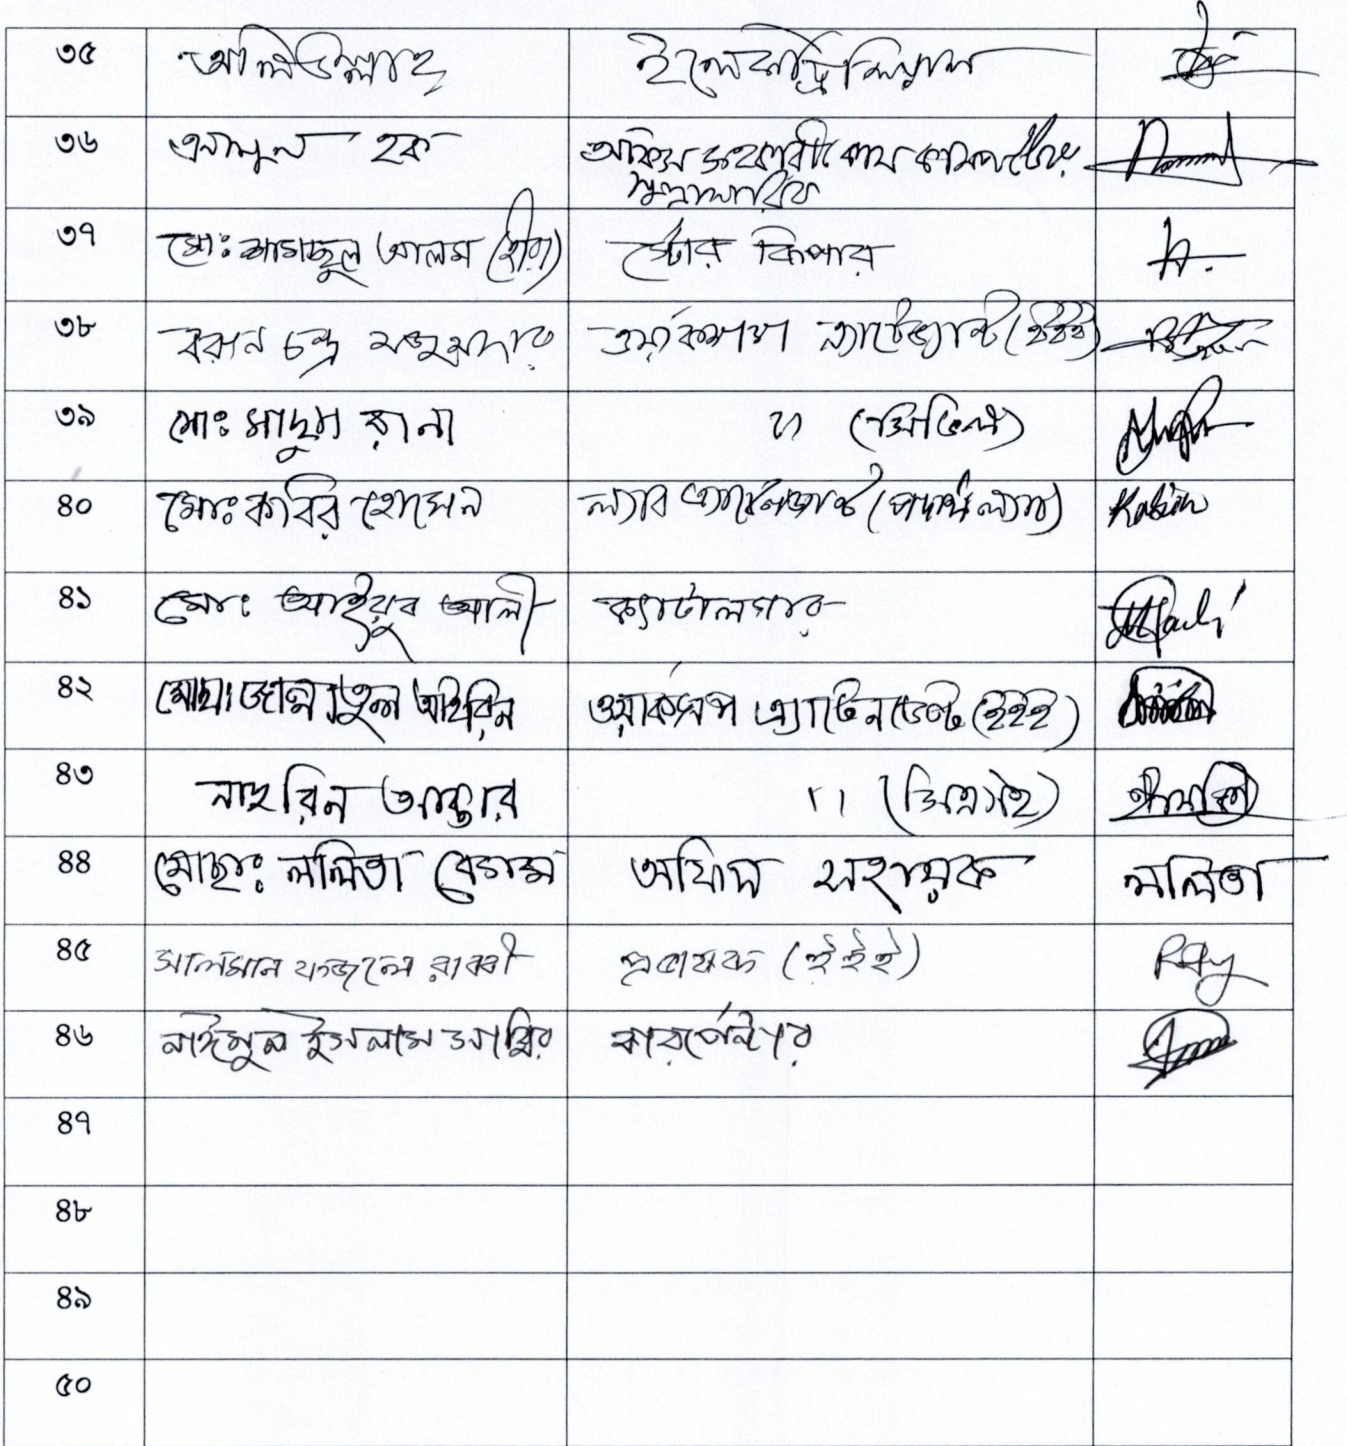 ৩৫ অলিউল্লাহ ইলেকট্রিশিয়ান
৩৬ এনামুল হক অফিস সহকারী কাম কম্পিউটার
মুদ্রাক্ষরিক
৩৭ মোঃ শামছুল আলম (হীরা) স্টোর কিপার
৩৮ চন্দ্র মজুমদার ওয়ার্কশপ এ্যাটেন্ড্যান্ট (ইইই)
৩৯ মোঃ মাসুম রানা " (সিভিল)
৪০ মোঃ কবির হোসেন ল্যাব এ্যাটেনডেন্ট (পদার্থ ল্যাব) Kabir
৪১ মোঃ আইয়ুব আলী ক্যাটালগার
৪২ মোছাঃ জান্নাতুল আইরিন ওয়ার্কসপ এ্যাটেনডেন্ট (ইইই)
৪৩ নাহরিন আক্তার " (সিএসই)
৪৪ মোছাঃ ললিতা বেগম অফিস সহায়ক ললিতা
৪৫ সালমান ফজলে রাব্বী প্রভাষক (ইইই)
৪৬ নাঈমুল ইসলাম সাব্বির কারপেন্টার
৪৭
৪৮
৪৯
৫০